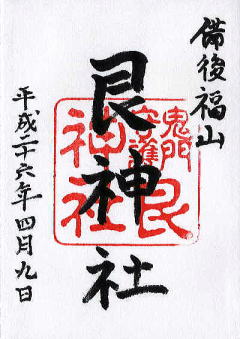 備後福山
艮神社
鬼門
守護
艮
神社
平成二十六年四月九日